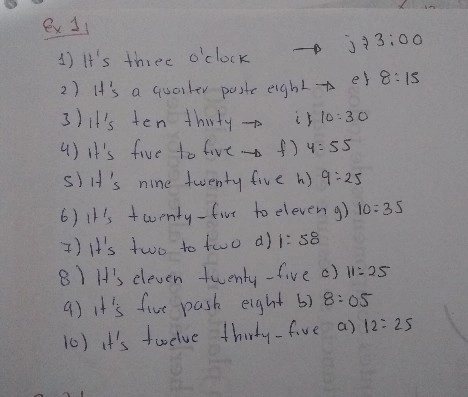 Ex 1|
1) It's three o'clock → j) 3:00
2) It's a quarter paste eight → e) 8:15
3) it's ten thirty → i) 10:30
4) it's five to five → f) 4:55
5) it's nine twenty five h) 9:25
6) it's twenty-five to eleven g) 10:35
7) it's two to two d) 1:58
8) It's eleven twenty-five c) 11:25
9) it's five past eight b) 8:05
10) it's twelve thirty-five a) 12:25